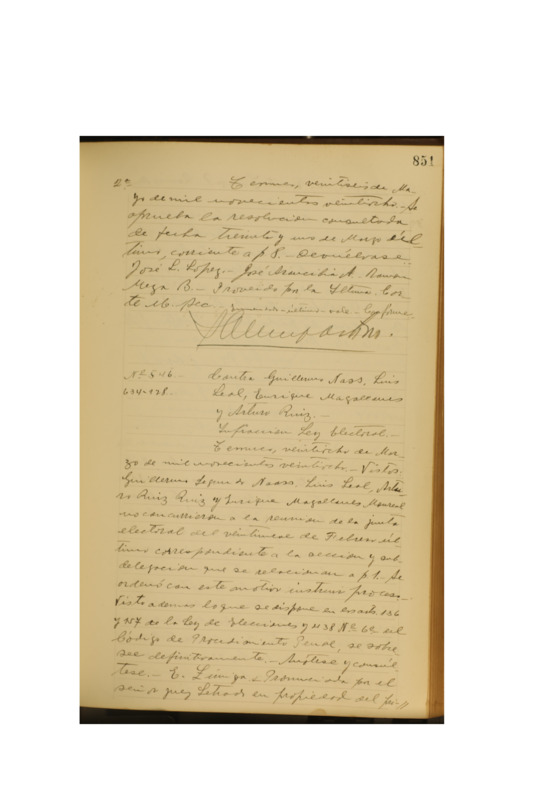 851
2ª Temuco, veintiseis de Ma-
yo de mil novecientos veintiocho. Se
aprueba la resolucion consultada
de fecha treinta y uno de Marzo últ
timo, corriente a f 8. Devuélvase.
José L. Lopez. José Arancibia A. Ramon
Meza B. Proveido por la Iltma. Cor-
te
Nº 546 Contra Guillermo Naas, Luis
Leal, Enrique Magallanes
y Arturo Ruiz.
Infraccion Ley Electoral.
Temuco, veintiocho de Mar-
zo de mil novecientos veintiocho. Vistos:
Guillermo Segundo Naass, Luis Leal, Artu-
ro Ruiz Ruiz y Enrique Magallanes
no concurrieron a la reunion de la junta
electoral del veintinueve de Febrero úl-
timo correspondiente a la seccion y sub
delegacion que se relacionan a f 1. Se
ordenó con este motivo instruir proceso.
Visto ademas lo que se dispone en los arts 156
y 157 de la Ley de Elecciones y 438 Nº 6º del
Código de Procedimiento Penal, se sobre
see definitivamente. Anótese y consúl
tese. E. Zuñiga Pronunciada por el
señor juez Letrado en propiedad del